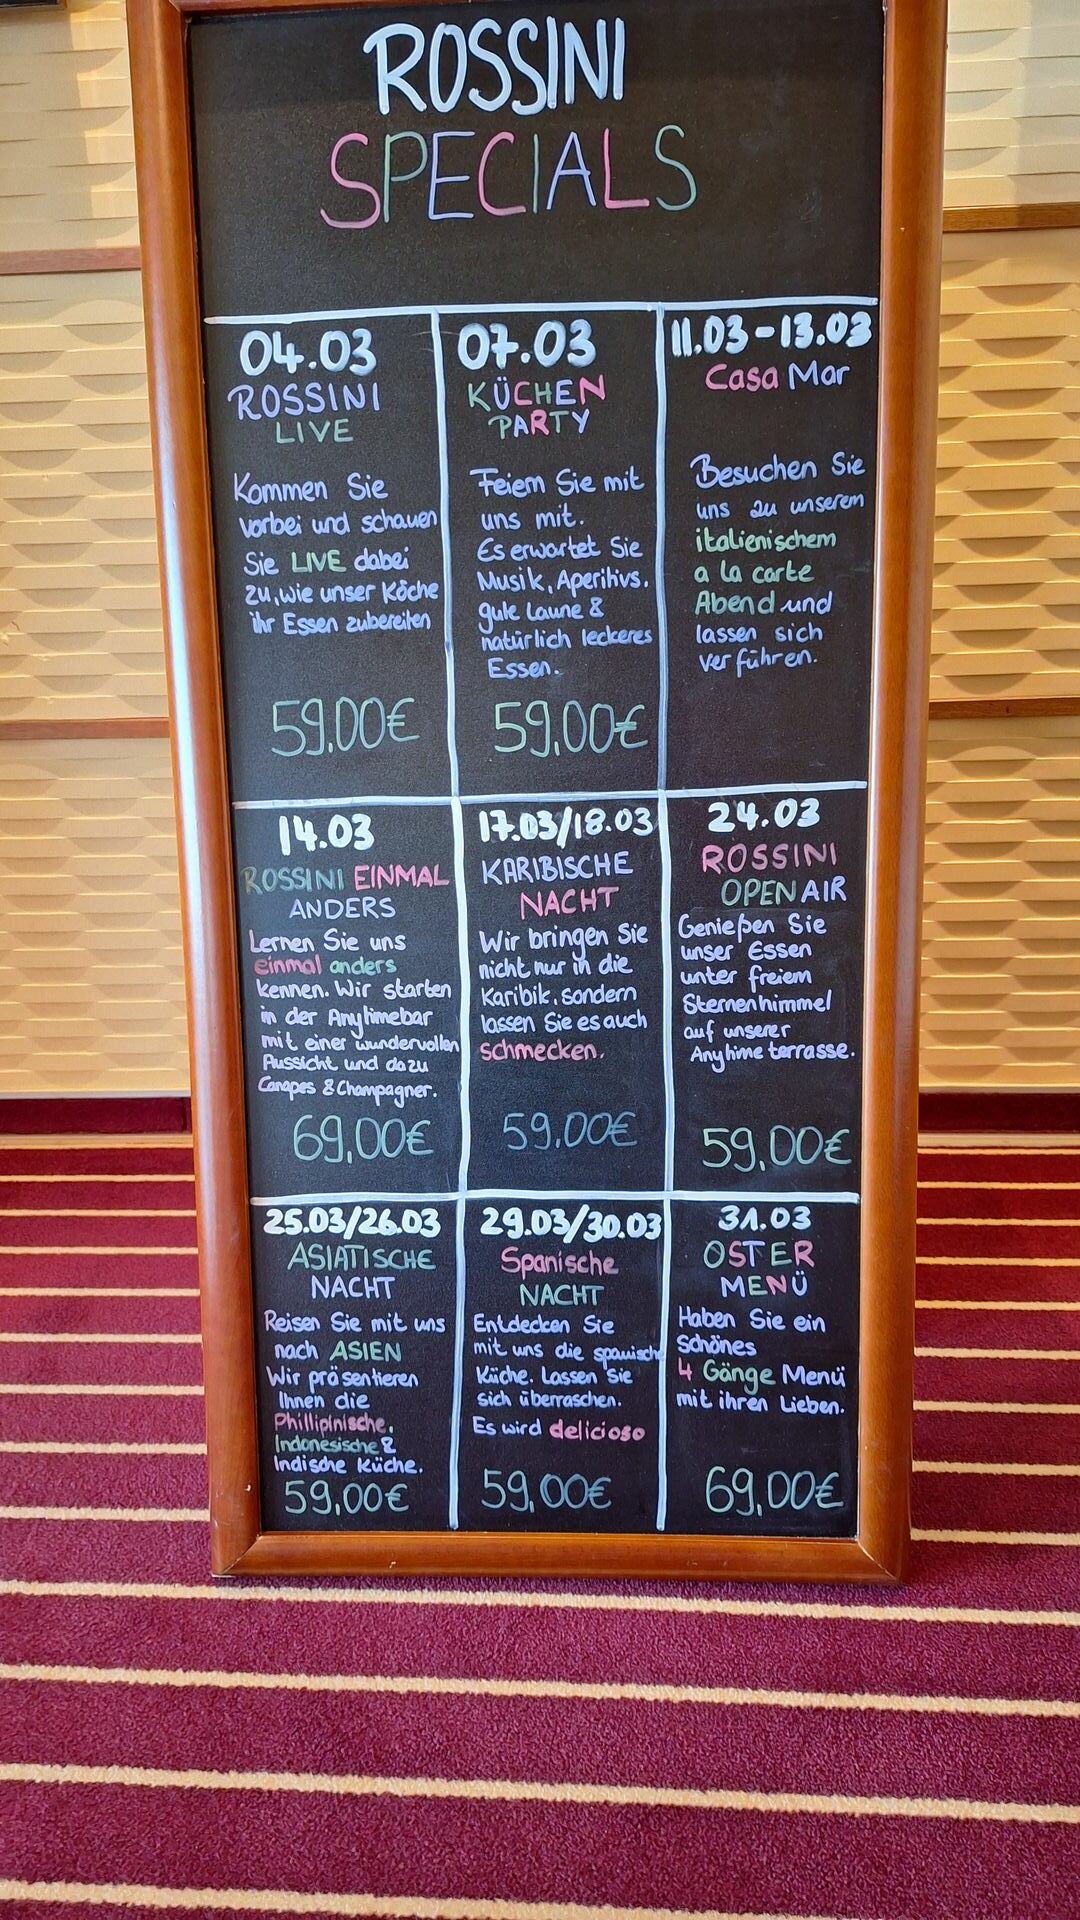 ROSSINI
SPECIALS
04.03
ROSSINI
LIVE
Kommen Sie
vorbei und schauen
Sie LIVE dabei
zu, wie unser Köche
ihr Essen zubereiten
59,00€
07.03
KÜCHEN
PARTY
Feiern Sie mit
uns mit.
Es erwartet Sie
Musik, Aperitivs,
gute Laune &
natürlich leckeres
Essen.
59,00€
11.03-13.03
Casa Mar
Besuchen Sie
uns zu unserem
italienischem
a la carte
Abend und
lassen sich
verführen.
14.03
ROSSINI EINMAL
ANDERS
Lernen Sie uns
einmal anders
kennen. Wir starten
in der Anytimebar
mit einer wundervollen
Aussicht und dazu
Canapes & Champagner.
69,00€
17.03/18.03
KARIBISCHE
NACHT
Wir bringen Sie
nicht nur in die
Karibik, sondern
lassen Sie es auch
schmecken.
59,00€
24.03
ROSSINI
OPEN AIR
Genießen Sie
unser Essen
unter freiem
Sternenhimmel
auf unserer
Anytime terrasse.
59,00€
25.03/26.03
ASIATISCHE
NACHT
Reisen Sie mit uns
nach ASIEN
Wir präsentieren
Ihnen die
Phillipinische,
Indonesische &
Indische Küche.
59,00€
29.03/30.03
Spanische
NACHT
Entdecken Sie
mit uns die spanische
Küche. Lassen Sie
sich überraschen.
Es wird delicioso
59,00€
31.03
OSTER
MENÜ
Haben Sie ein
schönes
4 Gänge Menü
mit ihren Lieben.
69,00€